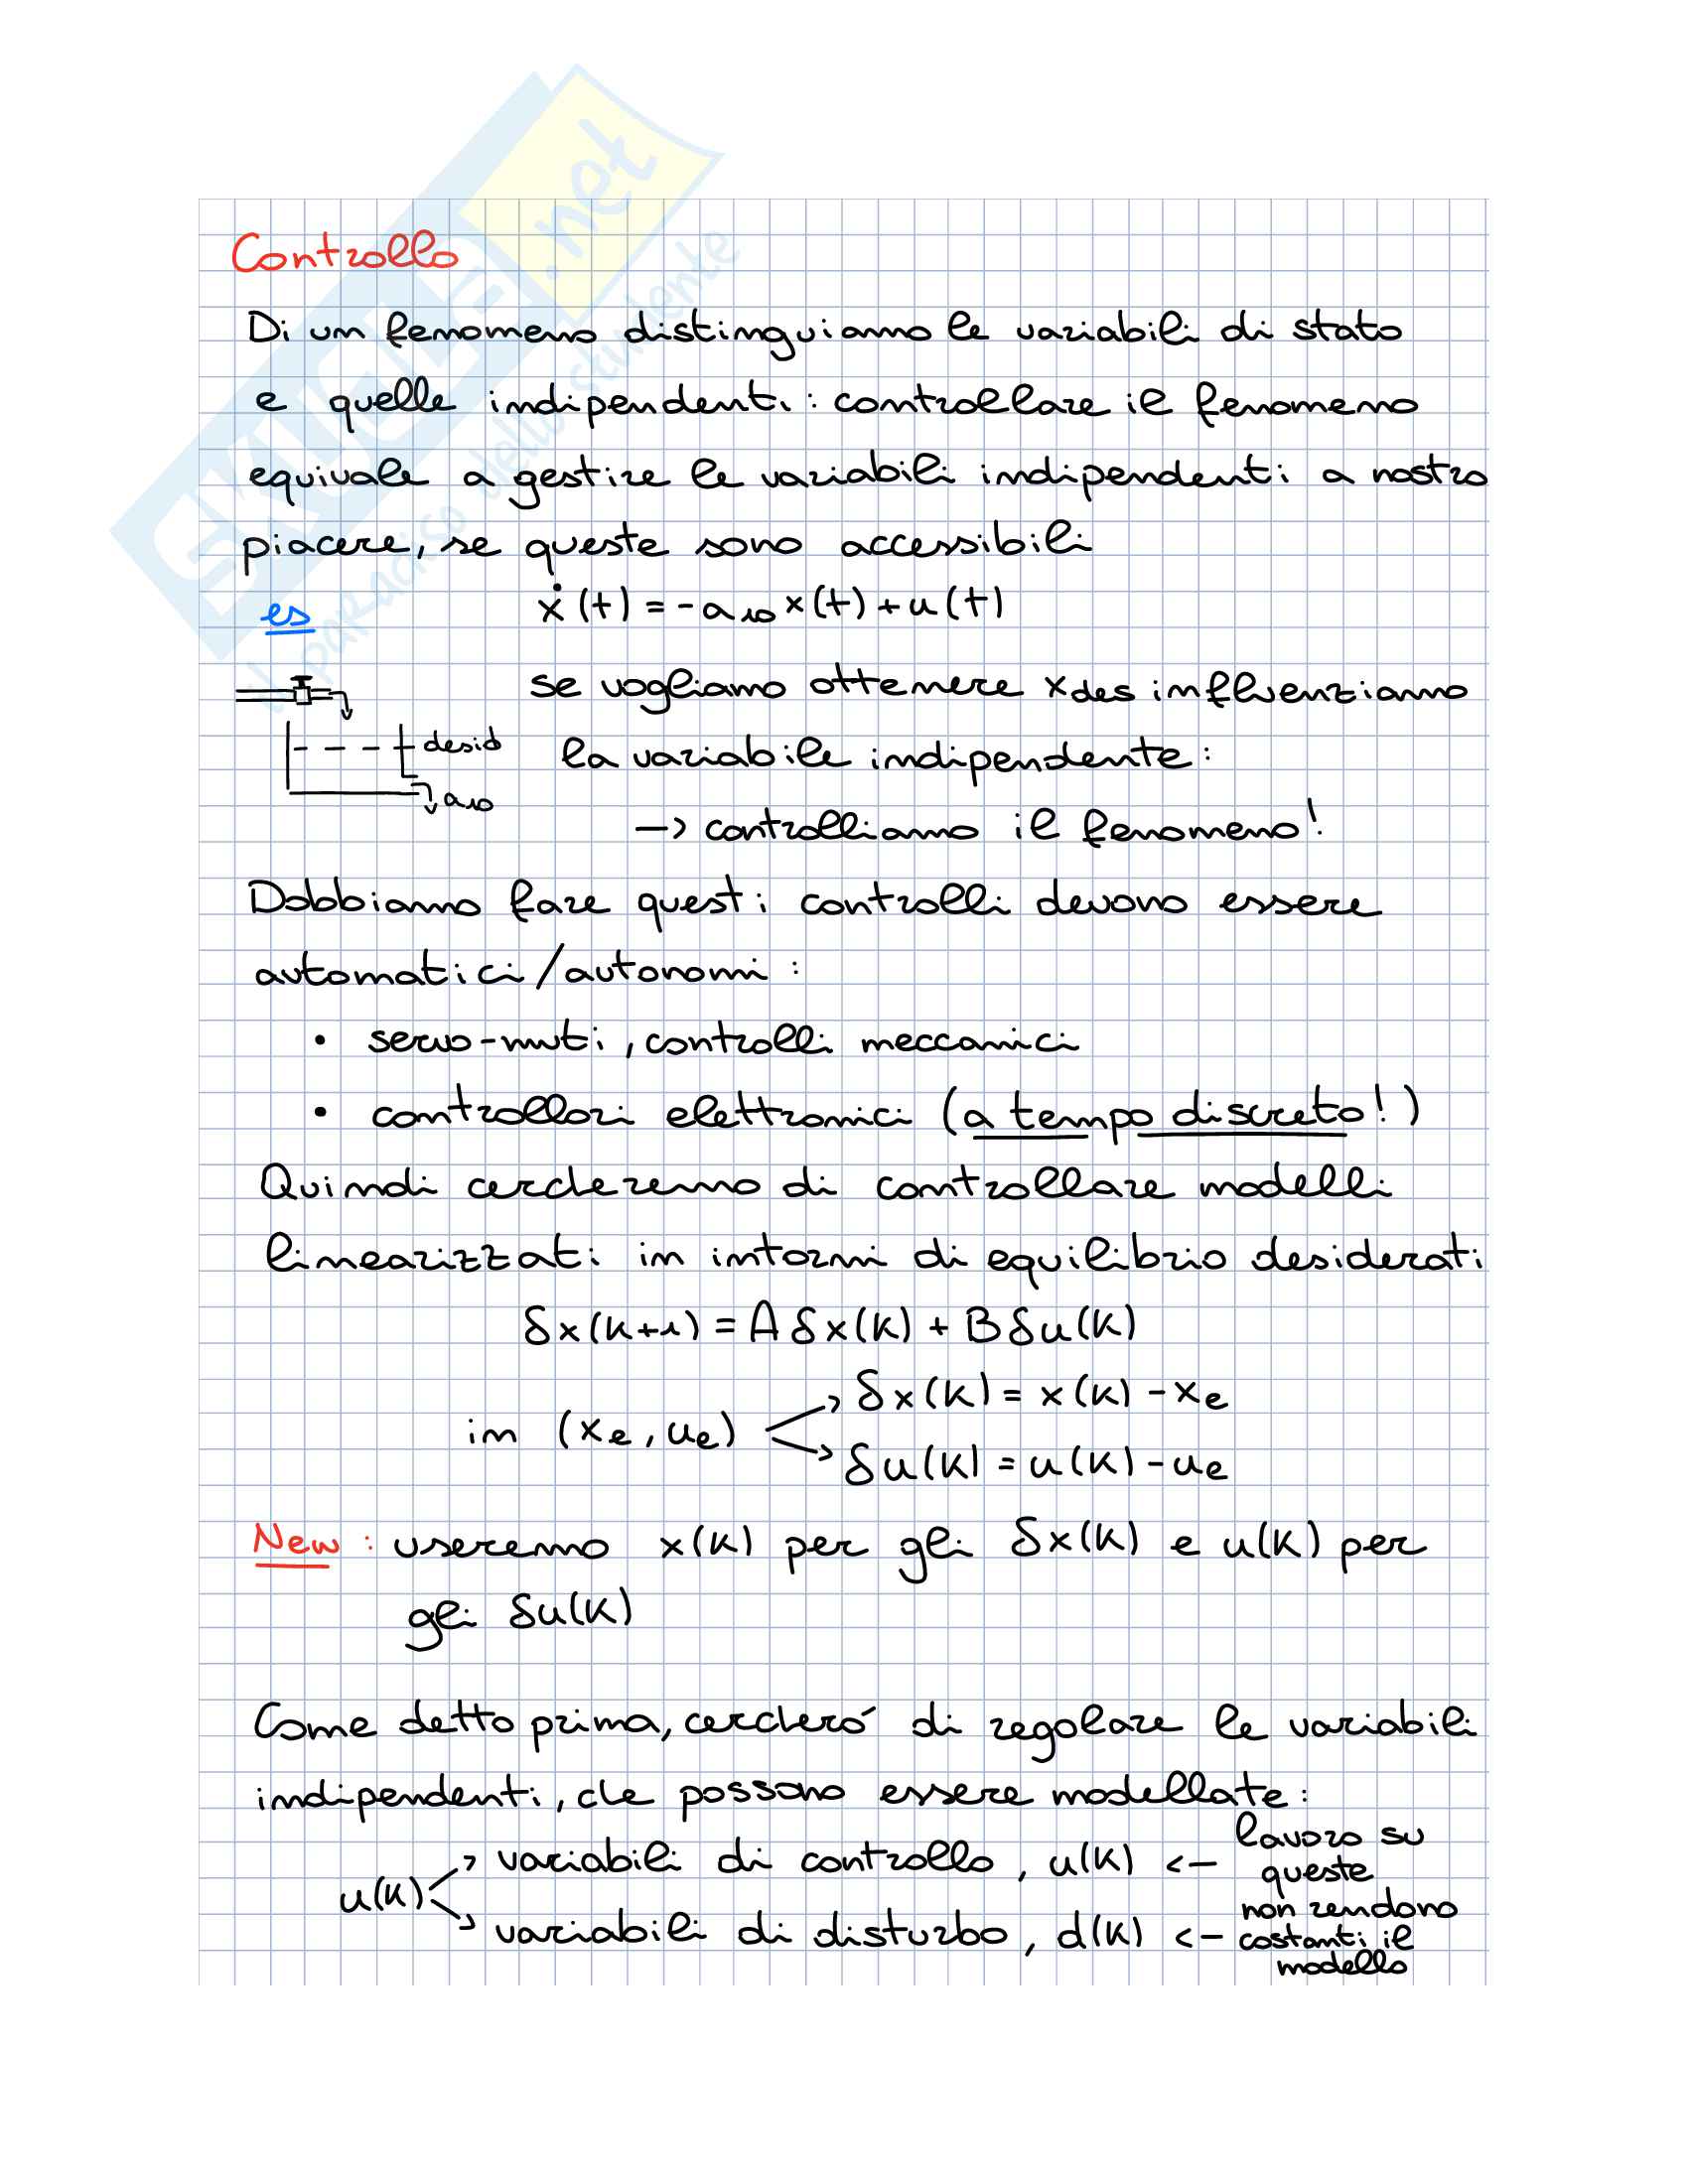 SKUOLA.net
il paradiso dello studente
Controllo
Di un fenomeno distinguiamo le variabili di stato
e quelle indipendenti: controllare il fenomeno
equivale a gestire le variabili indipendenti a nostro
piacere, se queste sono accessibili
es ẋ(t) = -a₁₀ x(t) + u(t)
se vogliamo ottenere x des influenziamo
desid
la variabile indipendente:
a₁₀
→ controlliamo il fenomeno!
Dobbiamo fare questi controlli devono essere
automatici/autonomi:
• servo-muti, controlli meccanici
• controllori elettronici (a tempo discreto!)
Quindi cercheremo di controllare modelli
linearizzati in intorni di equilibrio desiderati
δx(k+1) = A δx(k) + B δu(k)
in (xₑ, uₑ)
δx(k) = x(k) - xₑ
δu(k) = u(k) - uₑ
New: useremo x(k) per gli δx(k) e u(k) per
gli δu(k)
Come detto prima, cercherò di regolare le variabili
indipendenti, che possono essere modellate:
u(k)
variabili di controllo, u(k) ← lavoro su queste
variabili di disturbo, d(k) ← non rendono costanti il modello